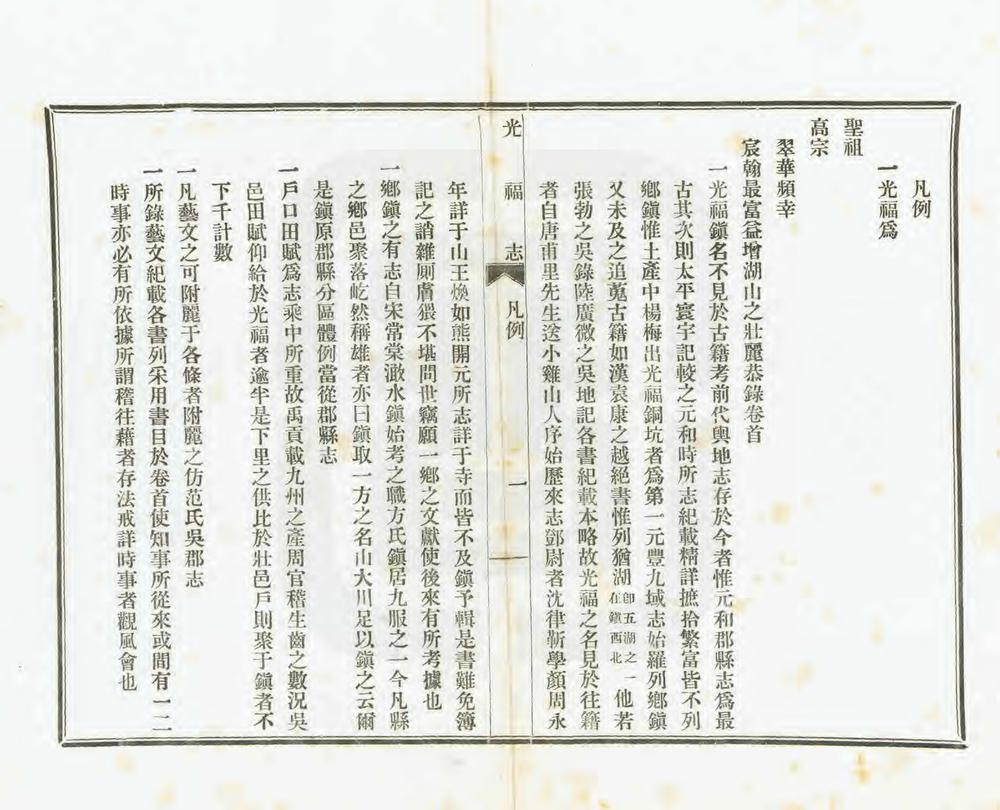 凡例
一光福爲
聖祖
高宗
翠華頻幸
宸翰最富益增湖山之壯麗恭錄卷首
一光福鎭名不見於古籍考前代輿地志存於今者惟元和郡縣志爲最
古其次則太平寰宇記較之元和時所志紀載精詳摭拾繁富皆不列
鄉鎭惟土產中楊梅出光福銅坑者爲第一元豐九域志始羅列鄉鎭
又未及之追蒐古籍如漢袁康之越絕書惟列猶湖卽五湖之一在鎭西北他若
張勃之吳錄陸廣微之吳地記各書紀載本略故光福之名見於往籍
者自唐甫里先生送小雞山人序始歷來志鄧尉者沈律靳學顏周永
光福志
凡例
一
年詳于山王煥如熊開元所志詳于寺而皆不及鎭予輯是書難免簿
記之誚雜厠膚猥不堪問世竊願一鄉之文獻使後來有所考據也
一鄉鎭之有志自宋常棠澉水鎭始考之職方氏鎭居九服之一今凡縣
之鄉邑聚落屹然稱雄者亦曰鎭取一方之名山大川足以鎭之云爾
是鎭原郡縣分區體例當從郡縣志
一戶口田賦爲志乘中所重故禹貢載九州之產周官稽生齒之數況吳
邑田賦仰給於光福者逾半是下里之供比於壯邑戶則聚于鎭者不
下千計數
一凡藝文之可附麗于各條者附麗之仿范氏吳郡志
一所錄藝文紀載各書列采用書目於卷首使知事所從來或間有一二
時事亦必有所依據所謂稽往藉者存法戒詳時事者觀風會也